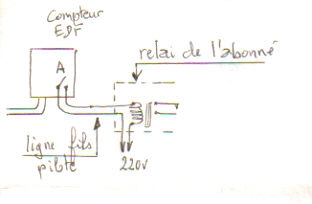 Compteur
EDF
relai de l'abonné
A
ligne fils
pilote
220v